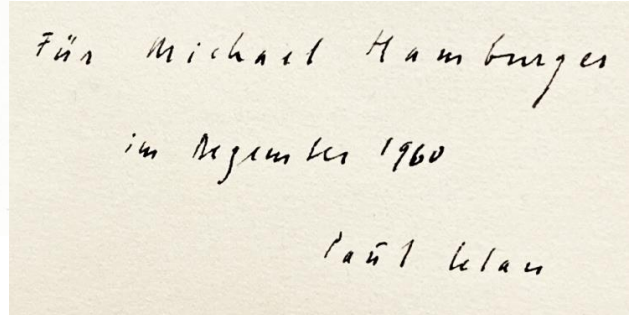 Für Michael Hamburger
im Dezember 1960
Paul Celan